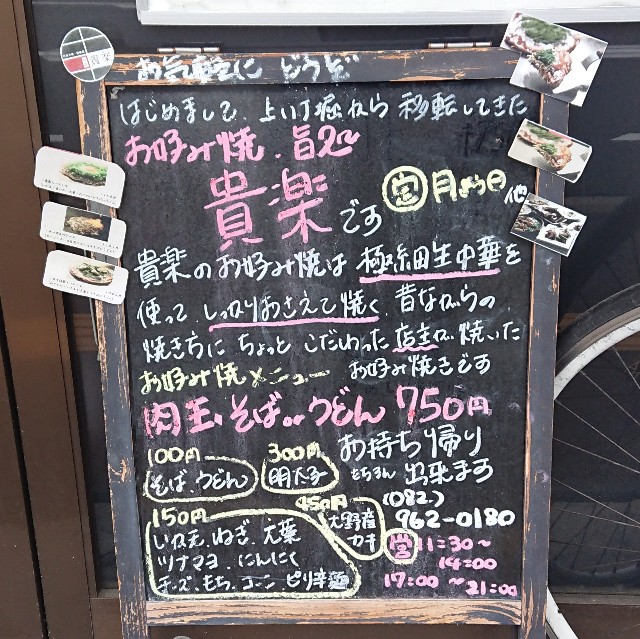 お気軽に どうぞ
はじめまして、上八丁堀から 移転してきた
お好み焼、旨い
貴楽です
定 月よう日 他
貴楽のお好み焼は 極細生中華を
使って しっかりおさえて焼く 昔ながらの
焼き方に ちょっと こだわった 店主が、焼いた
お好み焼きです
お好み焼メニュー
肉玉、そばorうどん 750円
100円
そば、うどん
300円
明太子
お持ち帰り
もちろん 出来ます
450円
大野産
カキ
150円
いか天、ねぎ、大葉
ツナマヨ、にんにく
チーズ、もち、コーン、ピリ辛麺
(082)
962-0180
営 11:30~
14:00
17:00 ~21:00